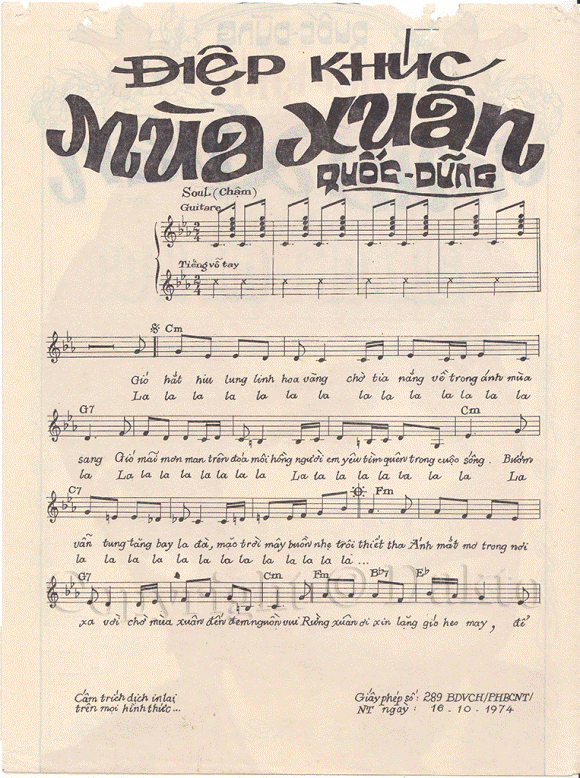 ĐIỆP KHÚC
MÙA XUÂN
QUỐC-DŨNG
Soul (Chậm)
Guitare
Tiếng vỗ tay
Cm
Gió hắt hiu lung linh hoa vàng chờ tia nắng về trong ánh mùa
La la la la la la la la la la la la la
G7 Cm
sang Gió mải mơn man trên đóa môi hồng người em yêu tìm quên trong cuộc sống. Bướm
la La la la la la la la La la la la la la la la La
C7 Fm
vẫn tung tăng bay la đà, mặc trời mây buồn nhẹ trôi thiết tha Ánh mắt mơ trong nơi
la la la la la la la la la la la la la ...
G7 Cm Fm Bb7 Eb
xa vời chờ mùa xuân đến đem nguồn vui Rừng xuân ơi xin lặng gió heo may, để
Copyright
Cấm trích dịch in lại
trên mọi hình thức...
Giấy phép số: 289 BDVCH/PHBCNT/
NT ngày: 16-10-1974